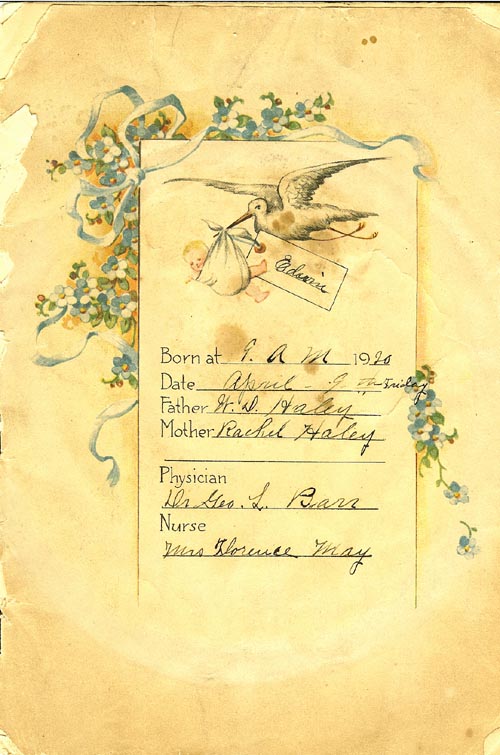 Edwin
Born at 9. A M 1920
Date April - 9th Friday
Father W. D. Haley
Mother Rachel Haley
Physician
Dr Geo. L. Barr
Nurse
Mrs Florence May